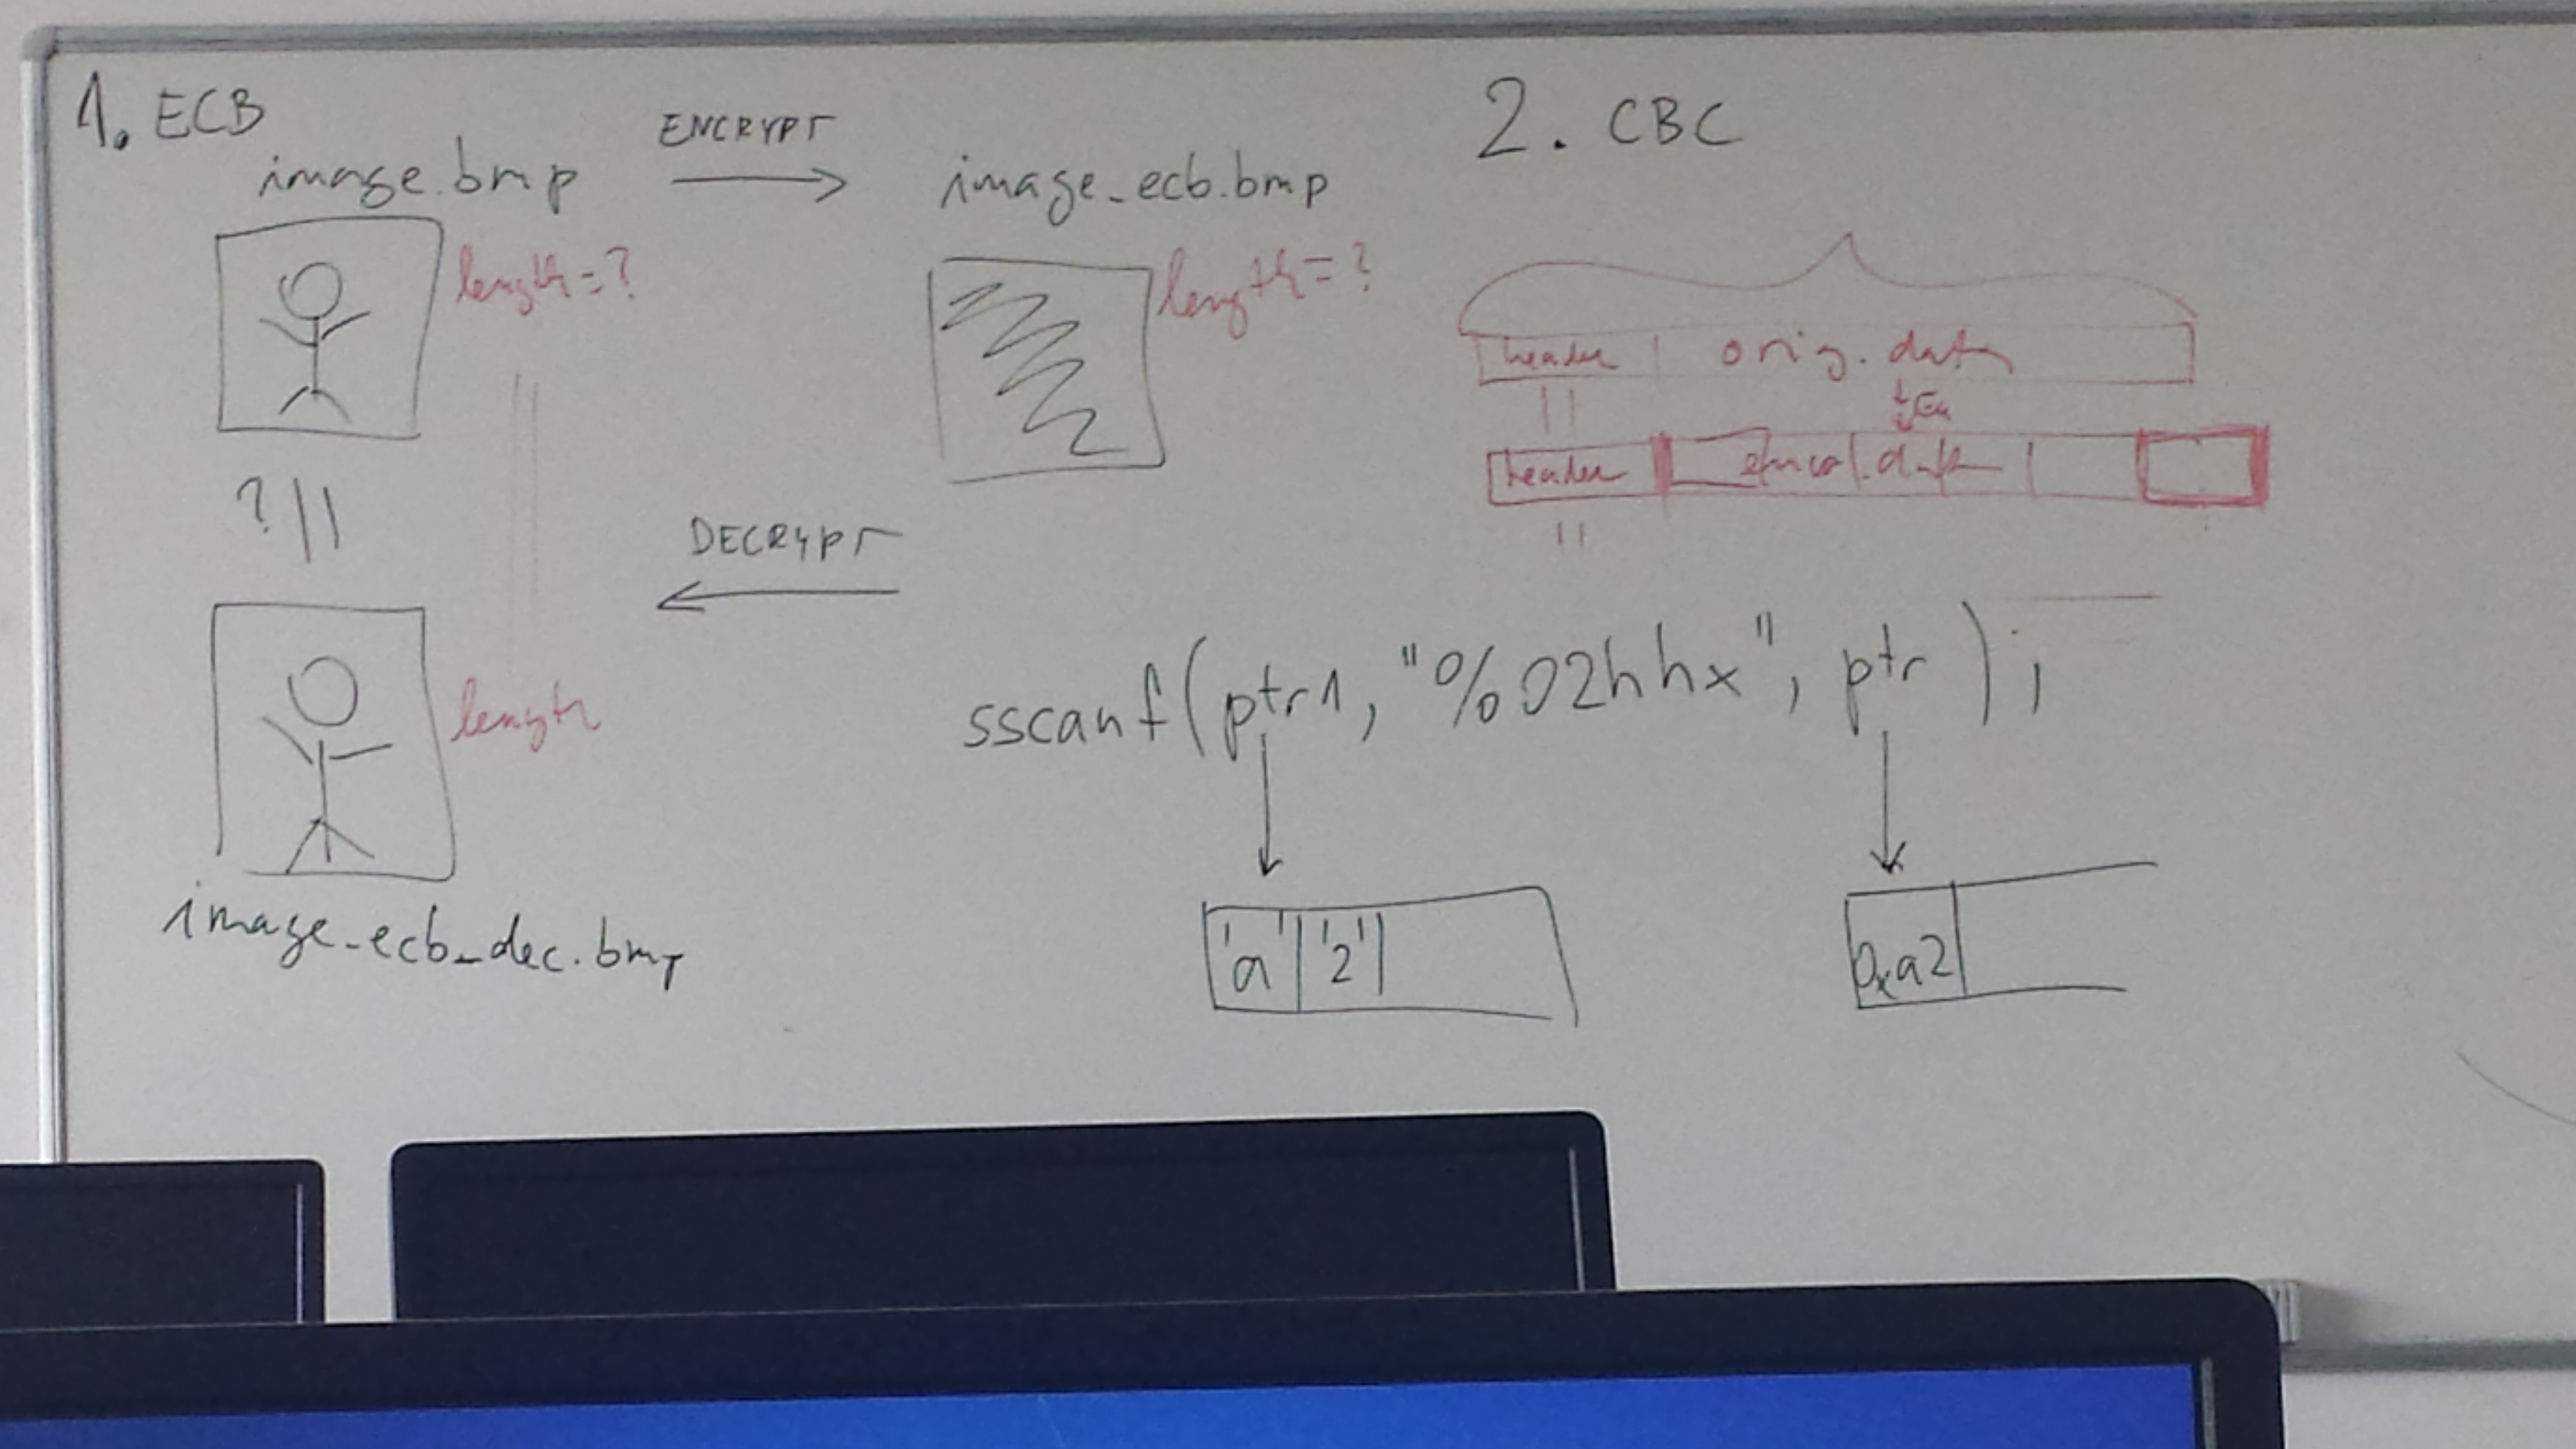 1. ECB
ENCRYPT
image.bmp
image_ecb.bmp
length=?
length=?
? ||
DECRYPT
length
image_ecb_dec.bmp
2. CBC
header
orig. data
||
header
||
sscanf(ptr1, "%02hhx", ptr);
'a' '2'
0xa2